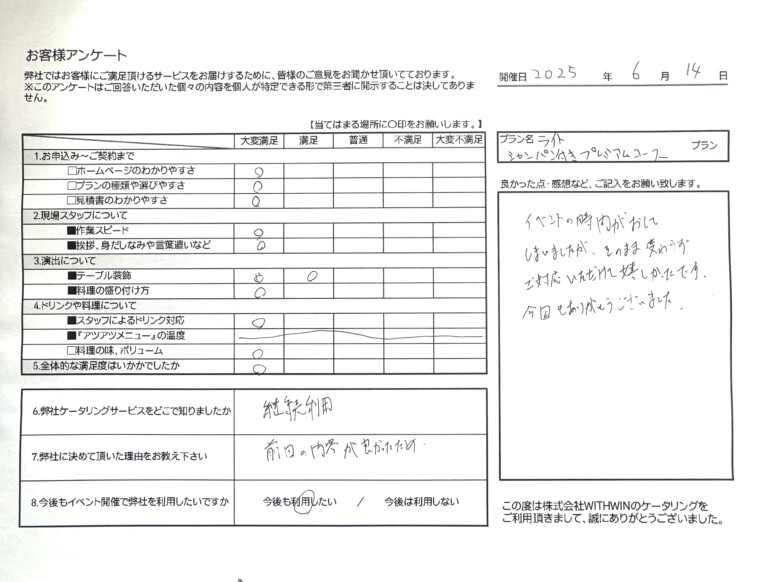 お客様アンケート
弊社ではお客様にご満足頂けるサービスをお届けするために、皆様のご意見をお聞かせ頂いてております。
※このアンケートはご回答いただいた個々の内容を個人が特定できる形で第三者に開示することは決してありま
せん。
開催日 2025 年 6 月 14 日
【当てはまる場所に〇印をお願いします。】
大変満足 満足 普通 不満足 大変不満足
1.お申込み～ご契約まで
□ホームページのわかりやすさ ○
□プランの種類や選びやすさ ○
□見積書のわかりやすさ ○
2.現場スタッフについて
■作業スピード ○
■挨拶、身だしなみや言葉遣いなど ○
3.演出について
■テーブル装飾 ○ ○
■料理の盛り付け方 ○
4.ドリンクや料理について
■スタッフによるドリンク対応 ○
■『アツアツメニュー』の温度
□料理の味、ボリューム ○
5.全体的な満足度はいかかでしたか ○
6.弊社ケータリングサービスをどこで知りましたか 継続利用
7.弊社に決めて頂いた理由をお教え下さい 前回の内容が良かったため
8.今後もイベント開催で弊社を利用したいですか 今後も利用したい / 今後は利用しない
プラン名 ライト
シャンパン付きプレミアムコース プラン
良かった点・感想など、ご記入をお願い致します。
イベントの時間がおして
しまいましたが、そのまま変わらず
ご対応いただけて嬉しかったです。
今回もありがとうございました。
この度は株式会社WITHWINのケータリングを
ご利用頂きまして、誠にありがとうございました。